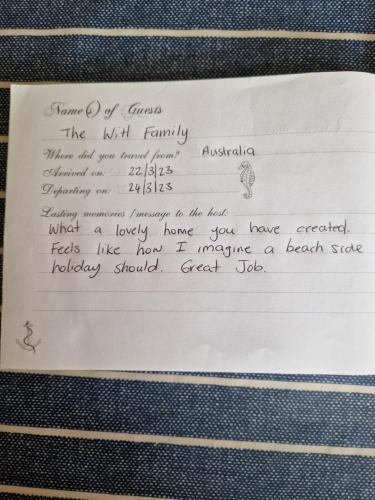 Name(s) of Guests
The Witl Family
Where did you travel from? Australia
Arrived on: 22/3/23
Departing on: 24/3/23
Lasting memories / message to the host:
What a lovely home you have created.
Feels like how I imagine a beach side
holiday should. Great Job.